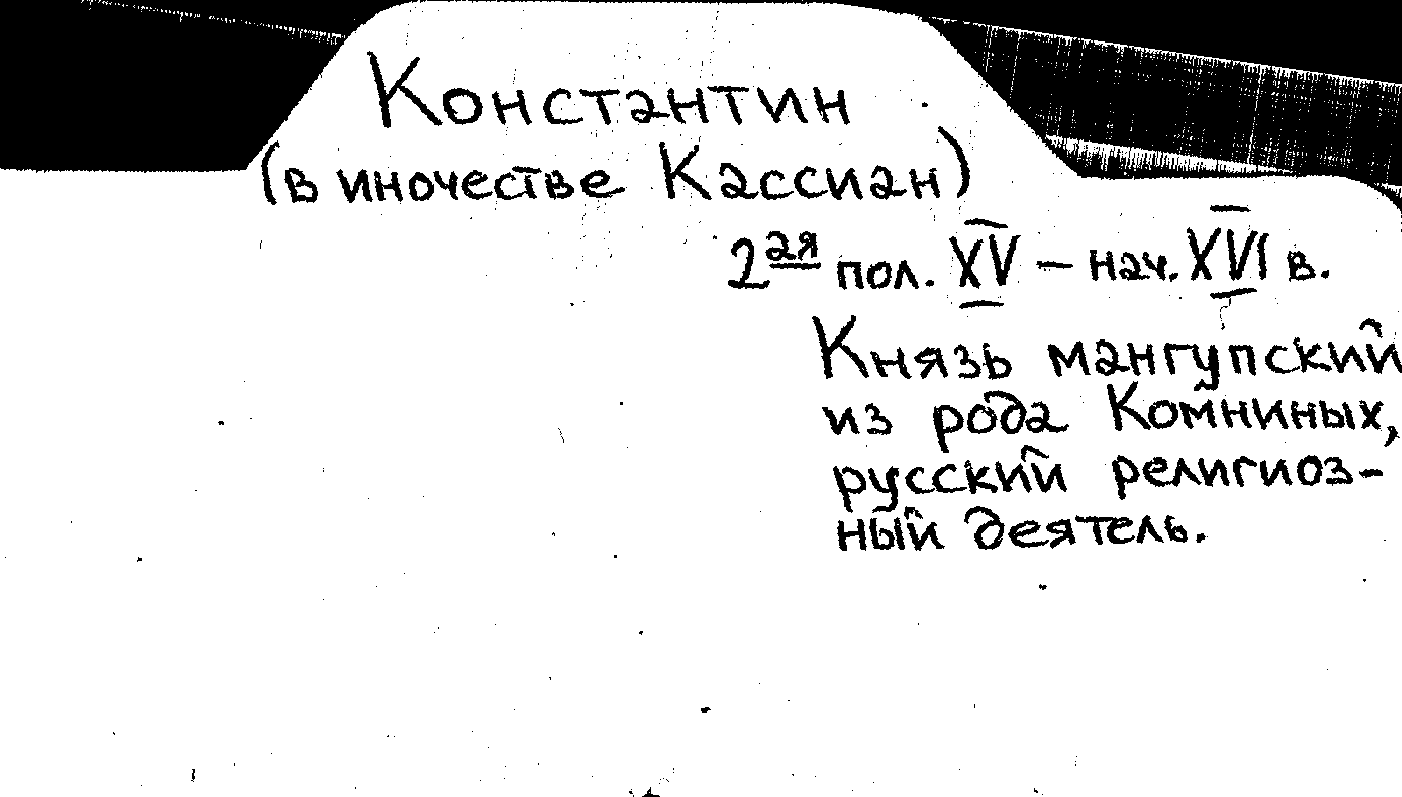 Константин
(в иночестве Кассиан)
2ая пол. XV – нач. XVI в.
Князь мангупский
из рода Комниных,
русский религиоз-
ный деятель.